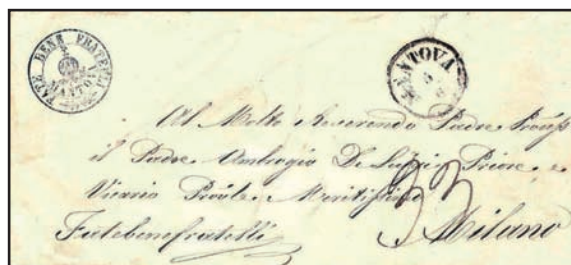 FATE BENE FRATELLI
MANTOVA
MANTOVA
5
6
Al Molto Reverendo Padre
il Padre Ambrogio De Priore e
Vicario Proãle Meritissimo
Fatebenefratelli
Milano